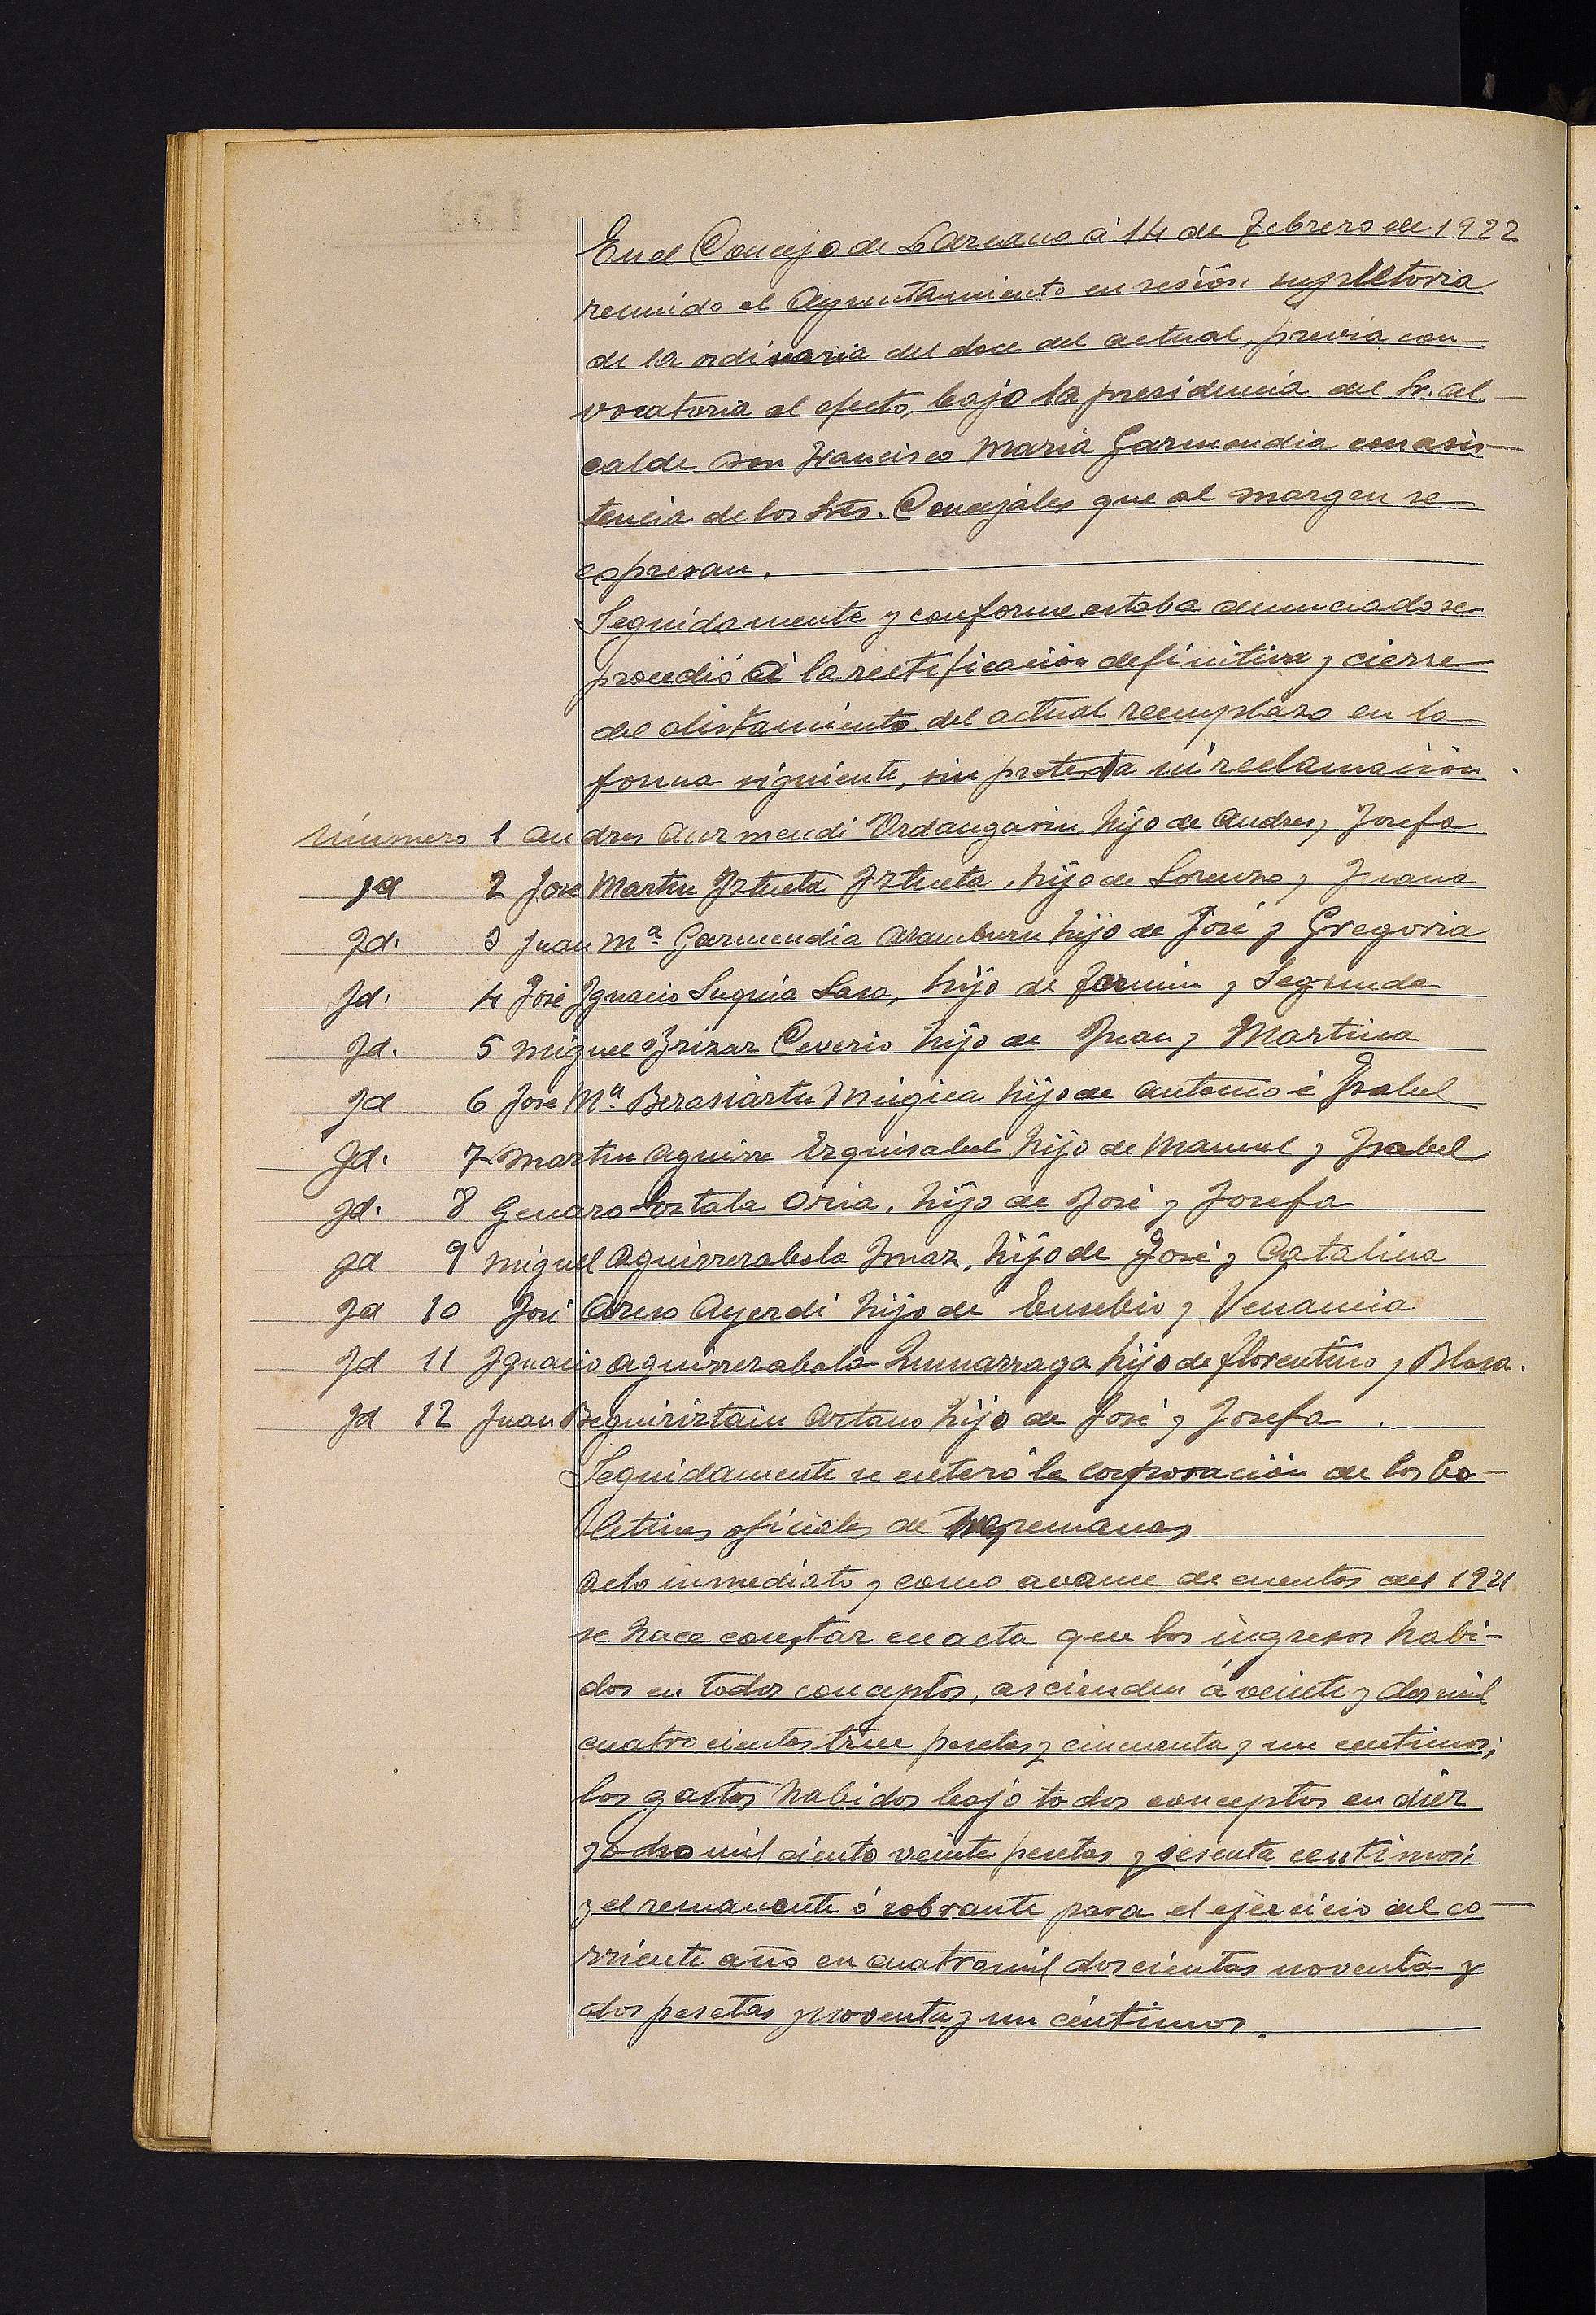 En el Concejo de Lazcano á 14 de Febrero de 1922
reunido el Ayuntamiento en sesión supletoria
de la ordinaria del doce del actual, previa con-
vocatoria al efecto, bajo la presidencia del Sr. al-
calde don Francisco Maria Garmendia con asis-
tencia de los Sres. Concejales que al margen se
espresan.
Seguidamente y conforme estaba anunciado se
procedió á la rectificación definitiva y cierre
del alistamiento del actual reemplazo en la
forma siguiente, sin protesta ni reclamación.
Número 1 Andres Aurmendi Urdangarin, hijo de Andres y Josefa
Id 2 José Martin Iztueta Iztueta, hijo de Lorenzo y Juana
Id. 3 Juan Mª Garmendia Aramburu hijo de José y Gregoria
Id. 4 José Ignacio Suquia Lasa, hijo de Fermin y Segunda
Id. 5 Miguel Irizar Ceverio hijo de Juan y Martina
Id 6 José Mª Berasiartu Mugica hijo de Antonio é Isabel
Id. 7 Martin Aguirre Ezquisabel hijo de Manuel y Isabel
Id. 8 Genaro Oria, hijo de José y Josefa
Id 9 Miguel Aguirrezabala Imaz, hijo de José y Catalina
Id 10 José Areso Ayerdi hijo de Eusebio y Venancia
Id 11 Ignacio Aguirrezabala Zumarraga hijo de Florentino y Blasa.
Id 12 Juan Beguiriztain Artano hijo de José y Josefa.
Seguidamente se enteró la corporación de los Bo-
letines oficiales de semanas
Acto inmediato y como avance de cuentas del 1921
se hace constar en acta que los ingresos habi-
dos en todos conceptos, ascienden á veinte y dos mil
cuatro cientas trece pesetas y cincuenta y un centimos;
los gastos habidos bajo todos conceptos en diez
y ocho mil ciento veinte pesetas y sesenta centimos
y el remanente ó sobrante para el ejercicio del co-
rriente año en cuatro mil doscientas noventa y
dos pesetas y noventa y un céntimos.